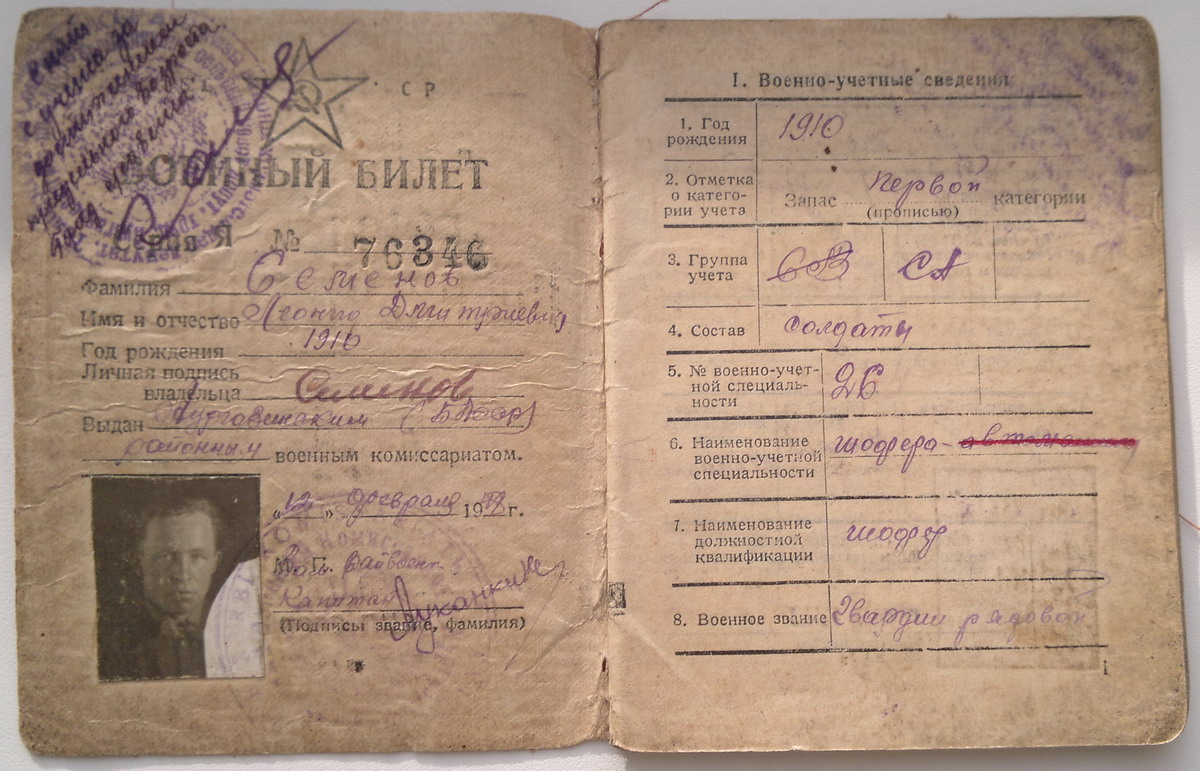 с учета за
предельного возраста
СР
ВОЕННЫЙ БИЛЕТ
Серия Я № 76346
Фамилия Семенов
Имя и отчество Леонид Дмитриевич
Год рождения 1910
Личная подпись
владельца Семенов
Выдан
районным военным комиссариатом.
„12" февраля 19 г.
М. П. Райвоен
Капитан
(Подписы звание, фамилия)
I. Военно-учетные сведения
1. Год
рождения 1910
2. Отметка
о катего-
рии учета Запас первой категории
(прописью)
3. Группа
учета СВ СА
4. Состав солдаты
5. № военно-учет-
ной специаль-
ности 26
6. Наименование
военно-учетной
специальности шофера-
7. Наименование
должностной
квалификации шофер
8. Военное звание Гвардии рядовой
1